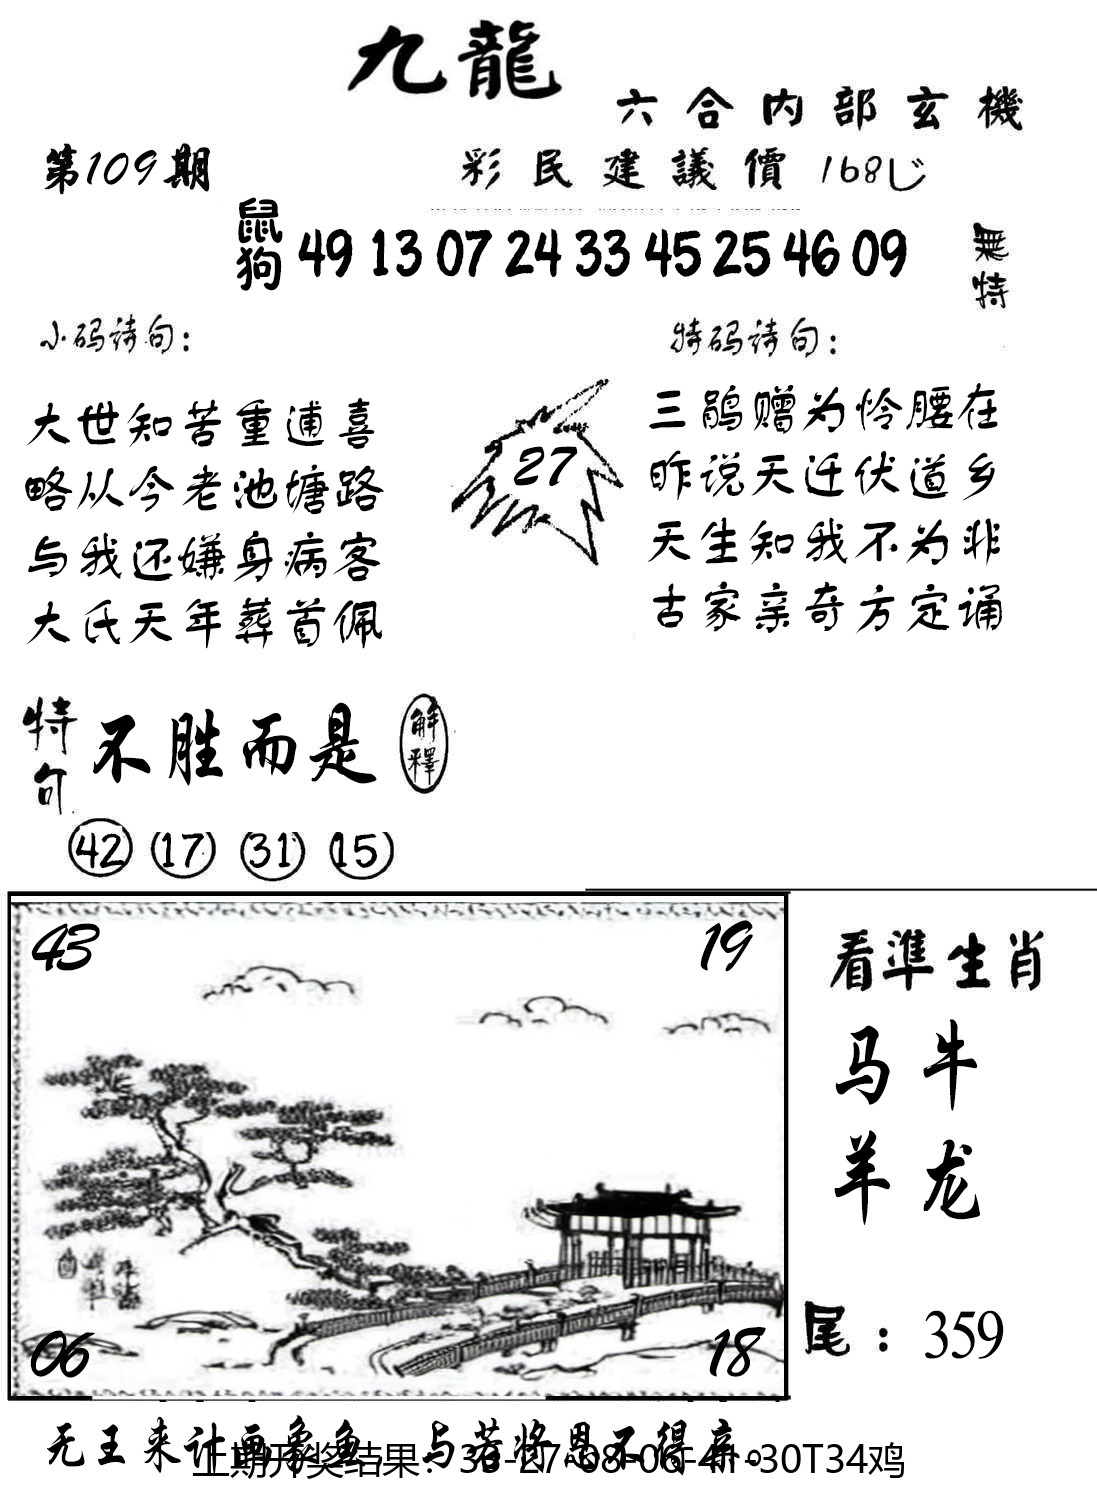 九龍
六合内部玄機
第109期
彩民建議價168
鼠狗 49 13 07 24 33 45 25 46 09
無特
小码诗句：
大世知苦重逋喜
略从今老池塘路
与我还嫌身病客
大氏天年葬首佩
27
特码诗句：
三鹃赠为怜腰在
昨说天迁伏道乡
天生知我不为非
古家亲奇方定诵
特句 不胜而是 解釋
42 17 31 15
43 19
06 18
看準生肖
马牛
羊龙
尾：359
无王来计画象鱼 与若将恩不得亲。
上期开奖结果：36-27-08-06-41-30T34鸡